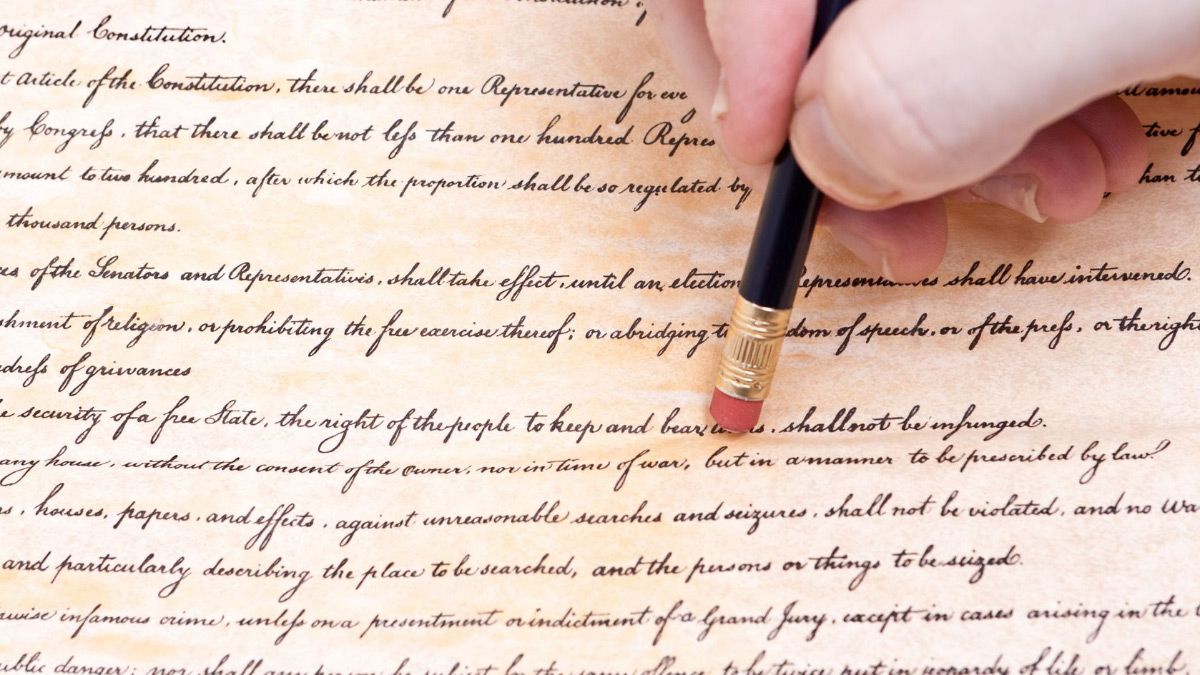 original Constitution.
t Article of the Constitution, there shall be one Representative for eve
by Congress, that there shall be not less than one hundred Repres tive f
mount to two hundred, after which the proportion shall be so regulated by han t
thousand persons.
ces of the Senators and Representatives, shall take effect, until an election Representatives shall have intervened.
shment of religion, or prohibiting the free exercise thereof; or abridging t dom of speech, or of the press, or the right
edress of grievances
e security of a free State, the right of the people to keep and bear s, shall not be infringed.
any house, without the consent of the Owner, nor in time of war, but in a manner to be prescribed by law.
rs, houses, papers, and effects, against unreasonable searches and seizures, shall not be violated, and no Wa
and particularly describing the place to be searched, and the persons or things to be seized.
rwise infamous crime, unless on a presentment or indictment of a Grand Jury, except in cases arising in the
ublic danger; nor shall any person be subject for the same offence to be twice put in jeopardy of life or limb